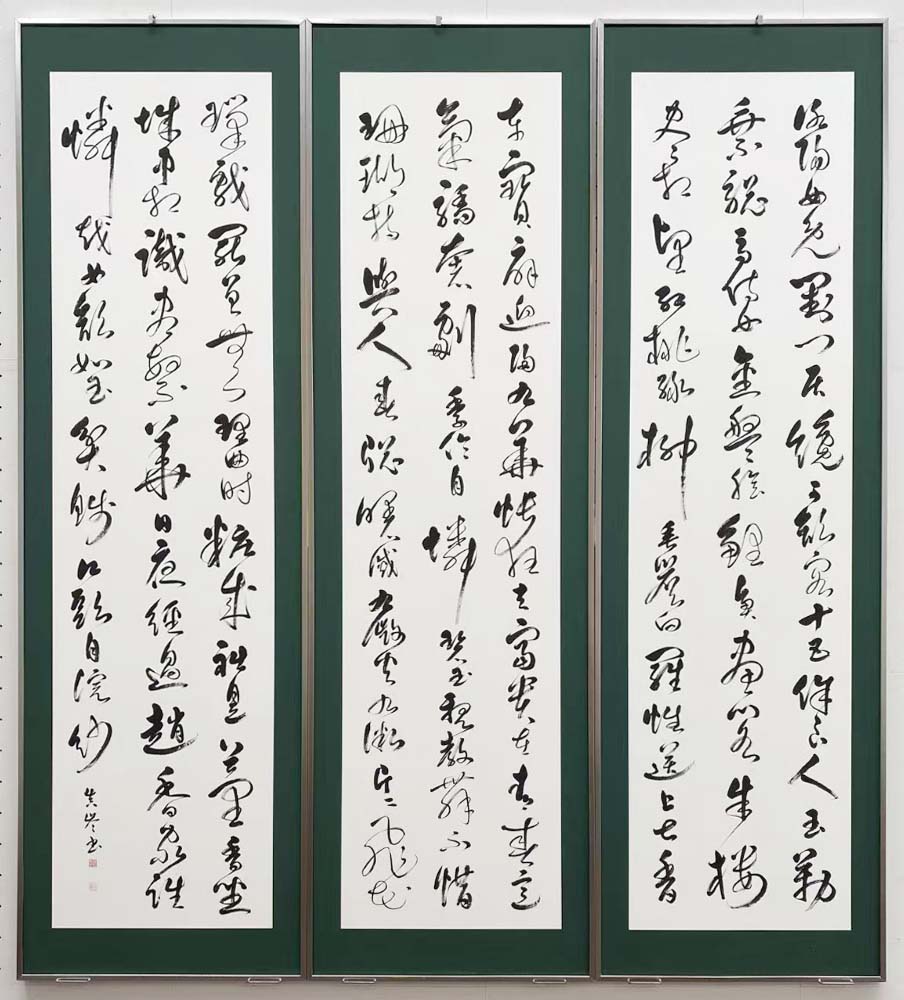 洛陽女兒對門居纔可顏容十五餘良人玉勒
乘驄馬侍女金盤膾鯉魚畫閣朱樓
盡相望紅桃綠柳垂簷向羅帷送上七香
車寶扇迎歸九華帳狂夫富貴在青春意
氣驕奢劇季倫自憐碧玉親教舞不惜
珊瑚持與人春窗曙滅九微火九微片片飛花
璅戲罷曾無理曲時粧成祗是薰香坐
城中相識盡繁華日夜經過趙李家誰
憐越女顏如玉貧賤江頭自浣紗
書